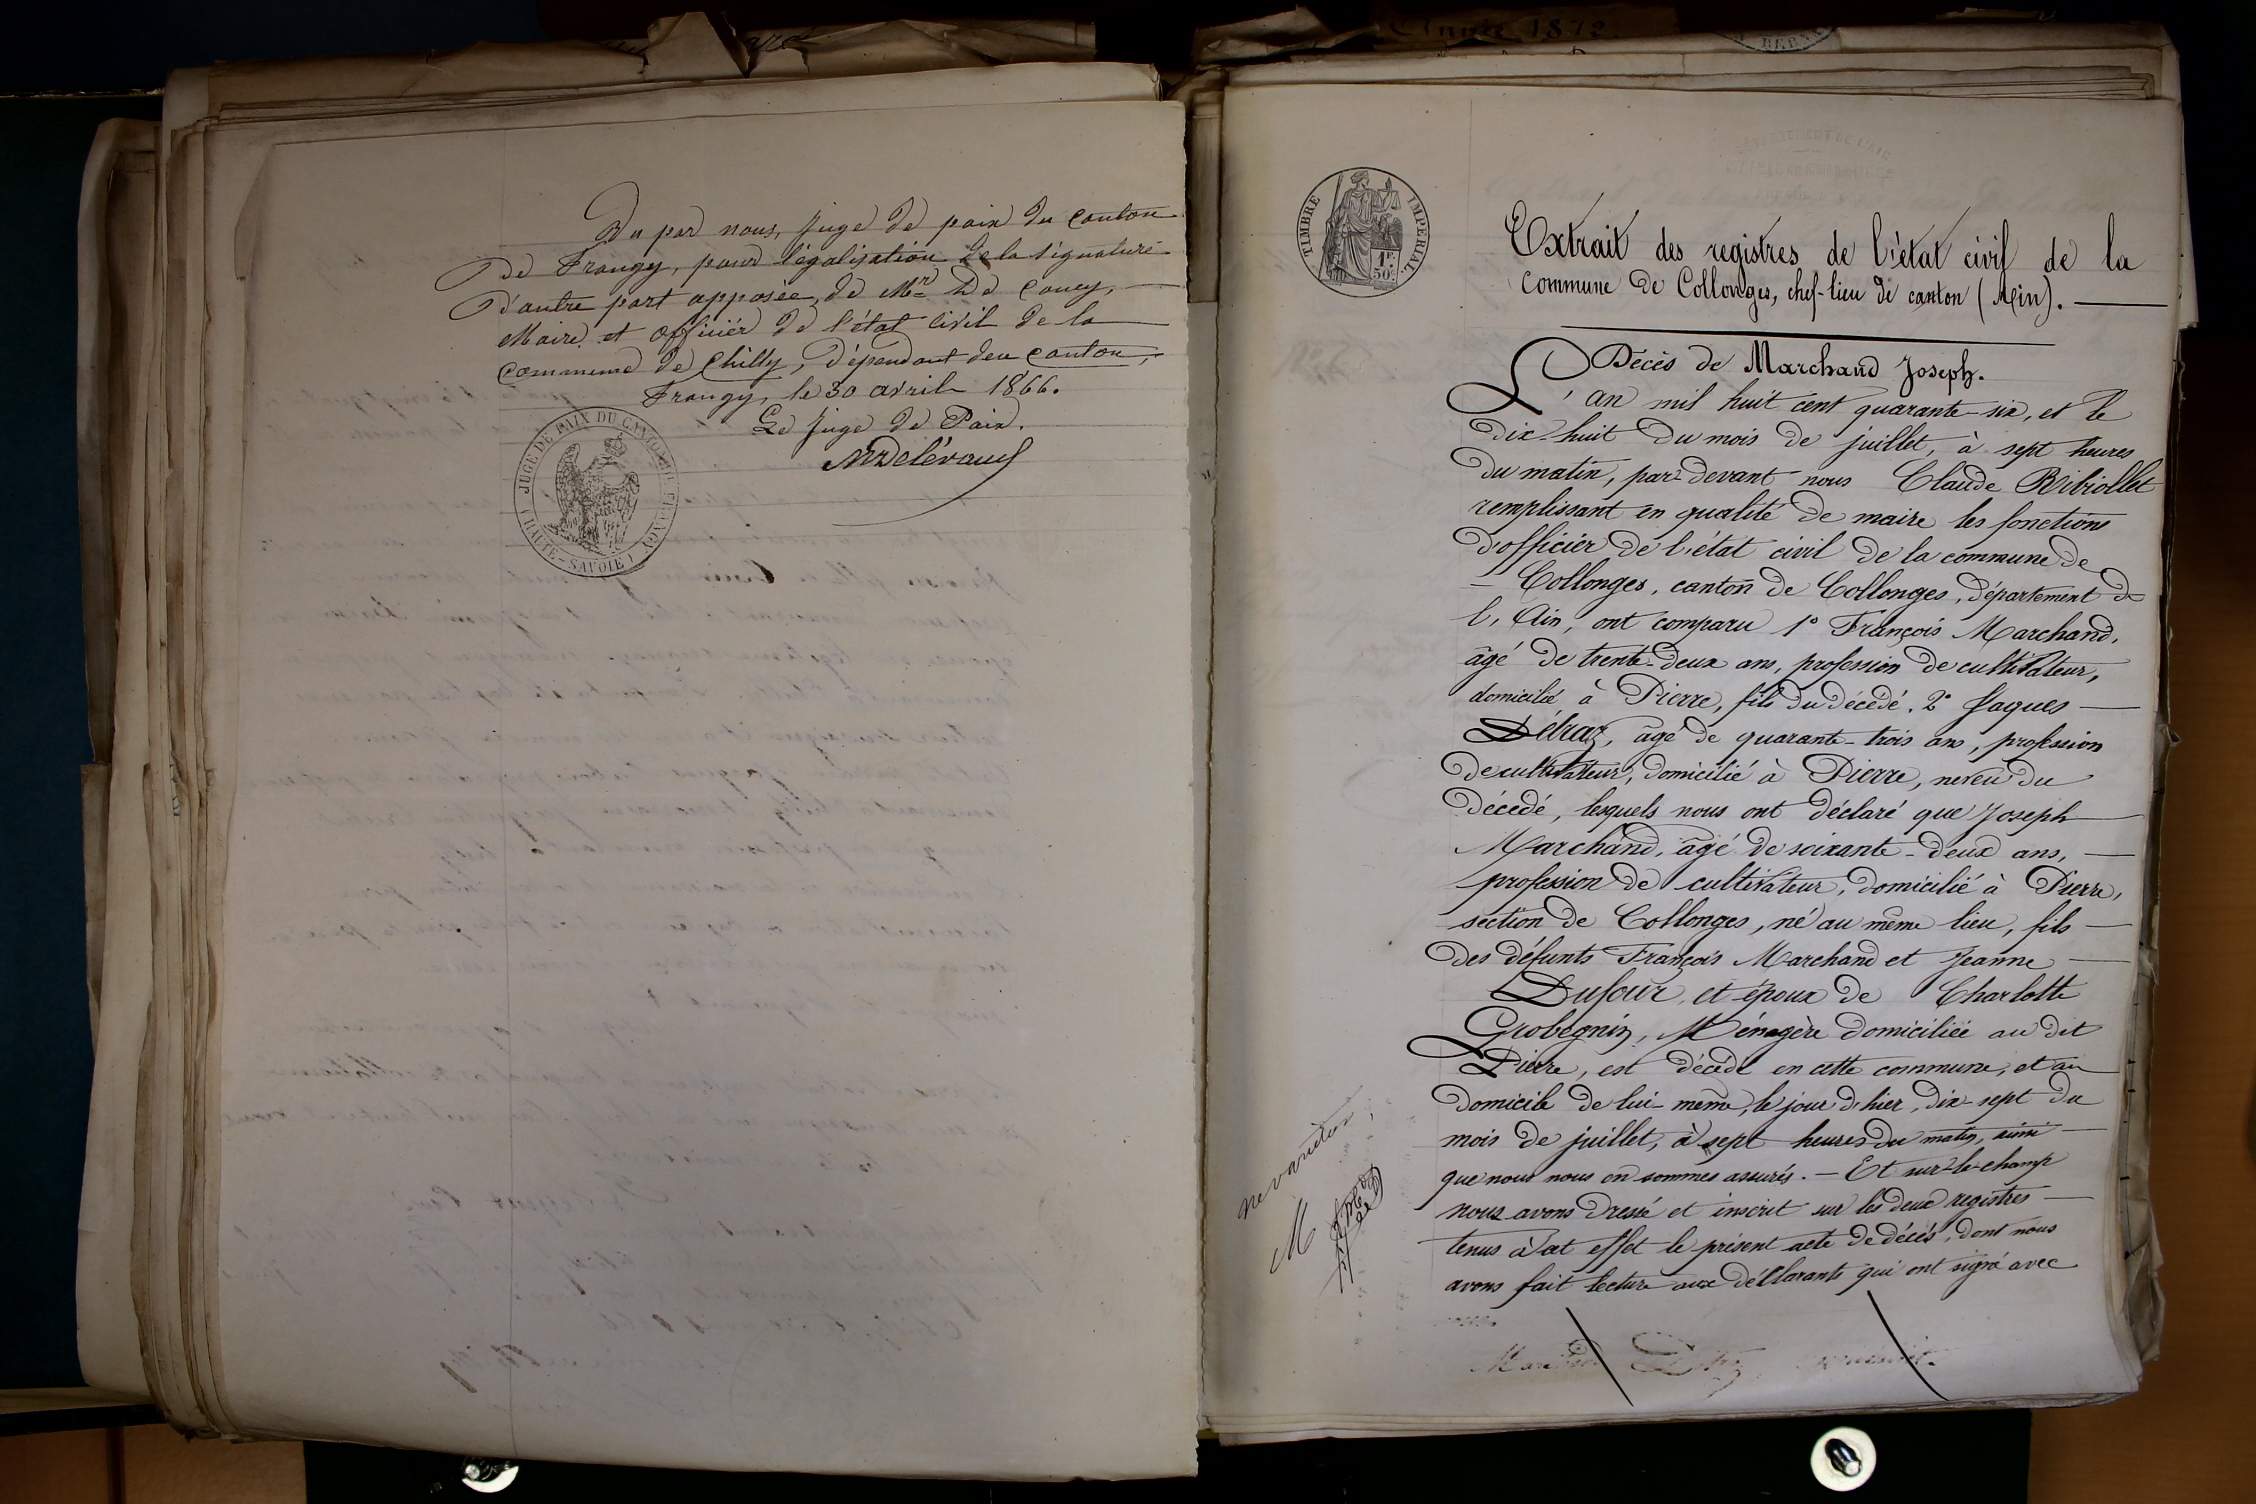 Année 1872
Vu par nous, juge de paix du canton
de Frangy, pour légalisation de la signature
d'autre part apposée, de Mr De Coucy,
Maire et officier de l'état civil de la
commune de Chilly, dépendant de ce canton,
Frangy, le 30 avril 1866.
Le juge de Paix.
JUGE DE PAIX DU CANTON DE FRANGY
(HAUTE-SAVOIE)
TIMBRE IMPERIAL
1F.
50C.
Extrait des registres de l'état civil de la
Commune de Collonges, chef-lieu de canton (Ain).
Décès de Marchand Joseph.
L'an mil huit cent quarante-six, et le
dix-huit du mois de juillet, à sept heures
du matin, par-devant nous Claude Ribiollet
remplissant en qualité de maire les fonctions
d'officier de l'état civil de la commune de
Collonges, canton de Collonges, département de
l'Ain, ont comparu 1° François Marchand,
âgé de trente-deux ans, profession de cultivateur,
domicilié à Pierre, fils du décédé. 2° Jaques
Détraz, âgé de quarante-trois ans, profession
de cultivateur, domicilié à Pierre, neveu du
décédé, lesquels nous ont déclaré que Joseph
Marchand, âgé de soixante-deux ans,
profession de cultivateur, domicilié à Pierre,
section de Collonges, né au même lieu, fils
des défunts François Marchand et Jeanne
Dufour, et époux de Charlotte
Grobegnin, Ménagère domiciliée au dit
Pierre, est décédé en cette commune, et au
domicile de lui-même, le jour d'hier, dix-sept du
mois de juillet, à sept heures du matin, ainsi
que nous nous en sommes assurés. — Et sur-le-champ
nous avons dressé et inscrit sur les deux registres
tenus à cet effet le présent acte de décès, dont nous
avons fait lecture aux déclarants qui ont signé avec
nous.
Marchand Détraz
ne varietur
M